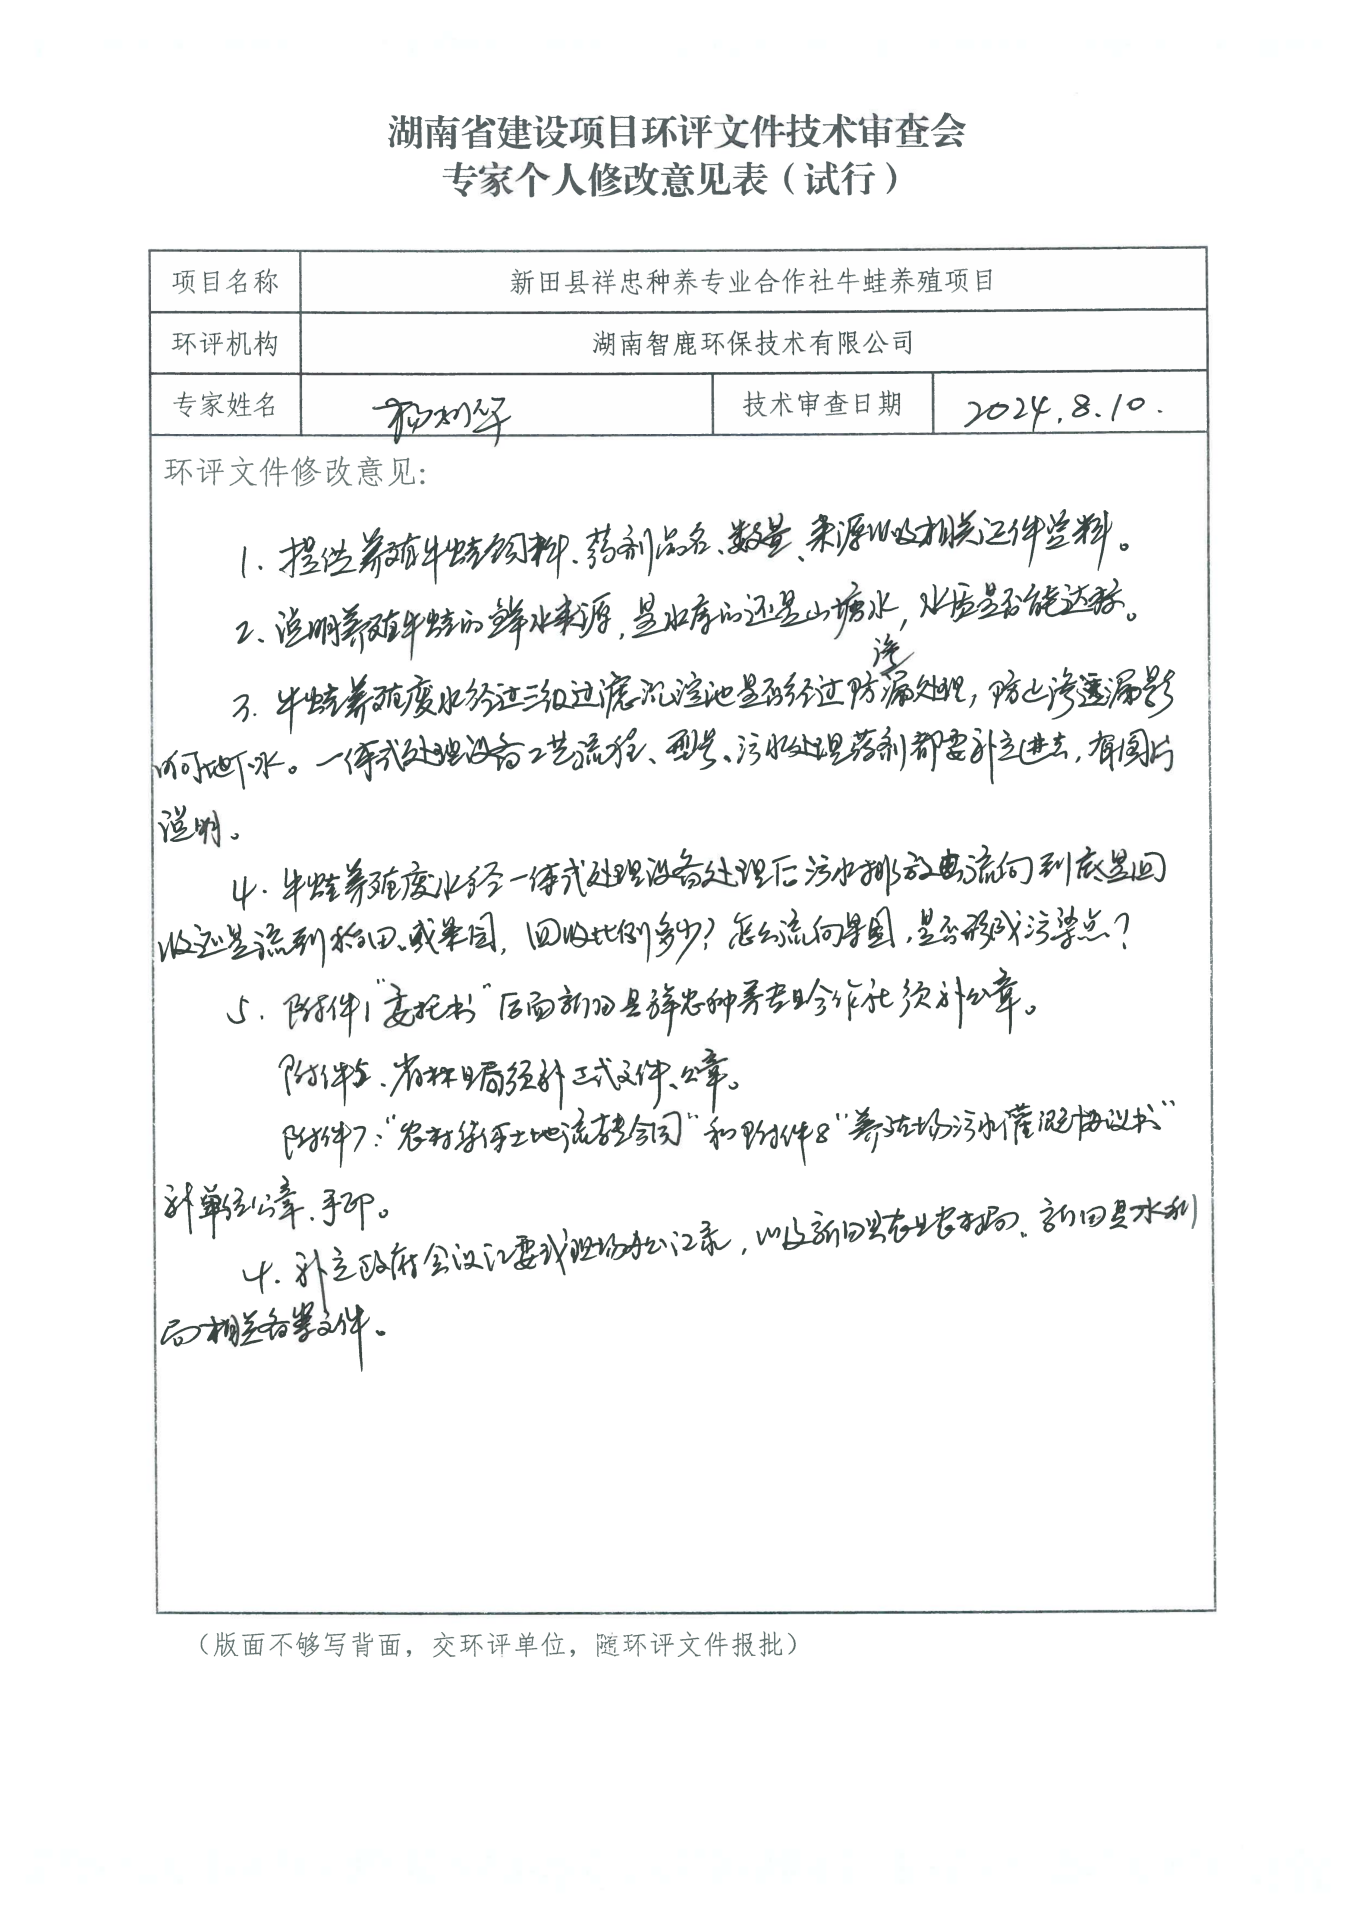 湖南省建设项目环评文件技术审查会
专家个人修改意见表（试行）
项目名称 新田县祥忠种养专业合作社牛蛙养殖项目
环评机构 湖南智鹿环保技术有限公司
专家姓名 杨利华 技术审查日期 2024.8.10.
环评文件修改意见:
1. 提供养殖牛蛙饲料、药剂品名、数量、来源以及相关证件资料。
2、说明养殖牛蛙的鲜水来源，是水库的还是山塘水，水质是否能达标。
渗
3. 牛蛙养殖废水经过三级过滤沉淀池是否经过防漏处理，防止渗透漏影
响地下水。一体式处理设备工艺流程、型号、污水处理药剂都要补充进去，有图片
说明。
4. 牛蛙养殖废水经一体式处理设备处理后污水排放流向到底是回
收还是流到稻田、或果园，回收比例多少？怎么流向果园，是否形成污染点？
5. 附件1“委托书”后面新田县祥忠种养专业合作社须补公章。
附件5、省林业局须补正式文件、公章。
附件7：“农村集体土地流转合同”和附件8“养殖场污水灌溉协议书”
补单位公章、手印。
4. 补充政府会议纪要或现场办公记录，以及新田县农业农村局、新田县水利
局相关备案文件。
（版面不够写背面，交环评单位，随环评文件报批）